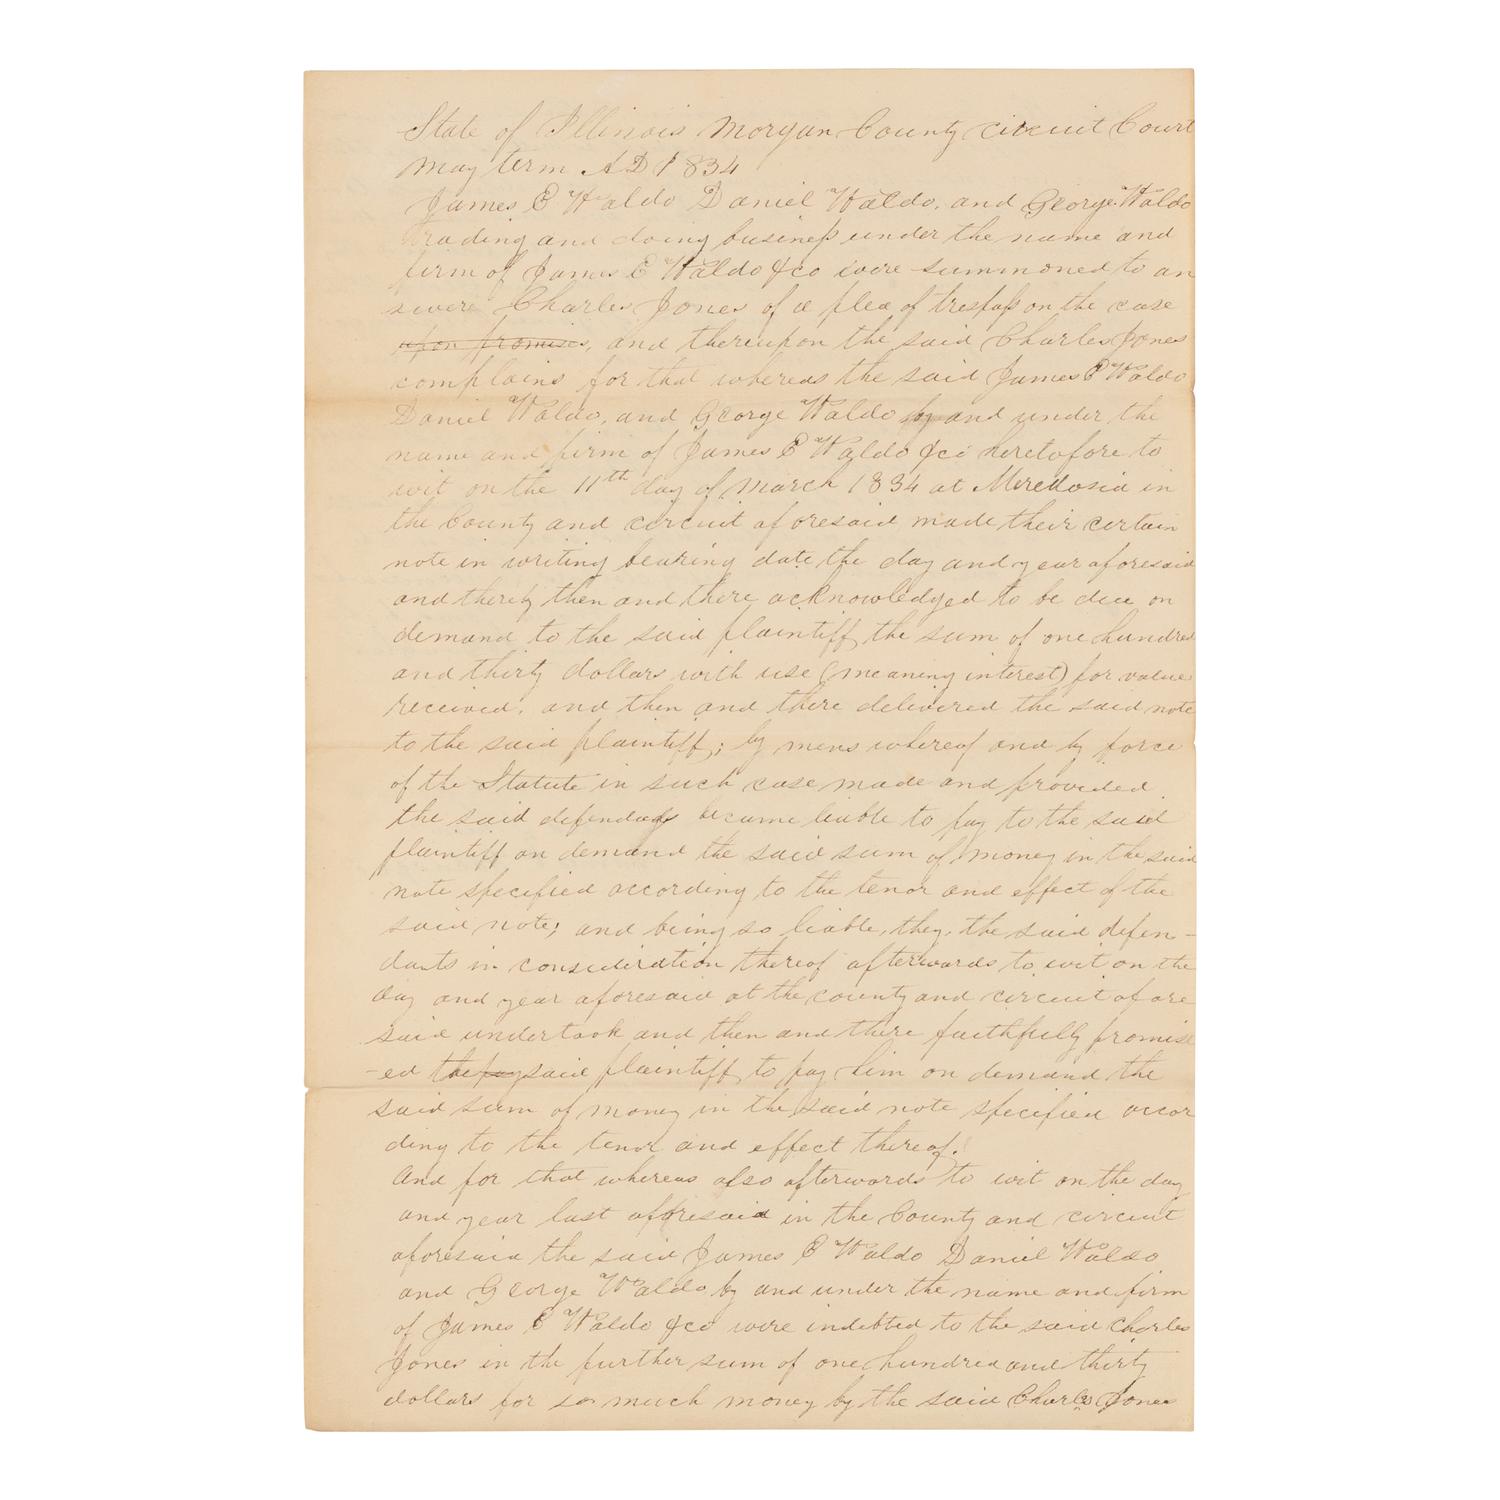 State of Illinois Morgan County circuit Court
May term AD 1834
James E Waldo Daniel Waldo, and George Waldo
trading and doing business under the name and
firm of James E Waldo &co were summoned to an
swere Charles Jones of a plea of trespass on the case
upon promises, and thereupon the said Charles Jones
complains for that whereas the said James E Waldo
Daniel Waldo, and George Waldo by and under the
name and firm of James E Waldo &co heretofore to
wit on the 11th day of March 1834 at Meredosia in
the County and circuit aforesaid made their certain
note in writing bearing date the day and year aforesaid
and thereby then and there acknowledged to be due on
demand to the said plaintiff the sum of one hundred
and thirty dollars with use (meaning interest) for value
received, and then and there delivered the said note
to the said plaintiff; by mens whereof and by force
of the Statute in such case made and provided
the said defendants became liable to pay to the said
plaintiff on demand the said sum of money in the said
note specified according to the tenor and effect of the
said note; and being so liable, they, the said defen-
dants in consideration thereof afterwards to wit on the
day and year aforesaid at the county and circuit afore
said undertook and then and there faithfully promis
-ed the pay said plaintiff to pay him on demand the
said sum of money in the said note specified accor
ding to the tenor and effect thereof.
And for that whereas also afterwards to wit on the day
and year last afforesaid in the County and circuit
aforesaid the said James E Waldo Daniel Waldo
and George Waldo by and under the name and firm
of James E Waldo &co were indebted to the said Charles
Jones in the further sum of one hundred and thirty
dollars for so much money by the said Charles Jones